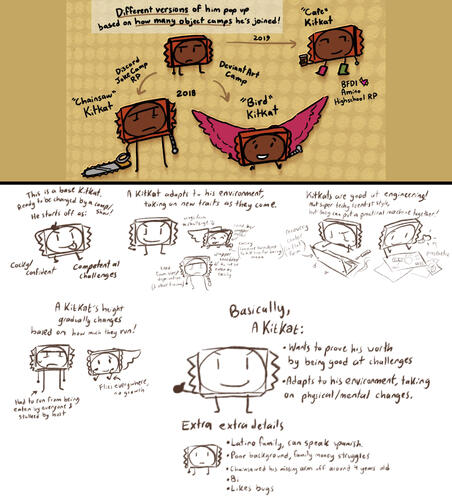 Different versions of him pop up
based on how many object camps he's joined!
"Cafe"
Kitkat
2019
Discord
Joke Camp
RP
DeviantArt
Camp
BFDI
Amino
Highschool RP
"Chainsaw"
Kitkat
2018
"Bird"
Kitkat
This is a base Kitkat.
Ready to be changed by a camp/
show!
He starts off as:
Cocky/
confident
Competent at
challenges
A Kitkat adapts to his environment,
taking on new traits as they come.
Kitkats are good at engineering!
Not super techy scientist style,
but they can put a practical machine together!
A Kitkat's height
gradually changes
based on how much they run!
Had to run from being
eaten by everyone &
stalked by host
Flies everywhere,
no growth
Basically,
A Kitkat:
• Wants to prove his worth
by being good at challenges
• Adapts to his environment, taking
on physical/mental changes.
Extra extra details
• Latino family, can speak spanish
• Poor background, family money struggles
• Chainsawed his missing arm off around 4 years old
• Bi
• Likes bugs